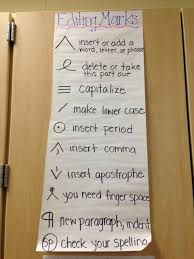 Editing Marks
insert or add a
word, letter, or phrase
delete or take
this part out
≡ capitalize
/ make lower case
⊙ insert period
insert comma
insert apostrophe
you need finger space
¶ new paragraph, indent
sp check your spelling